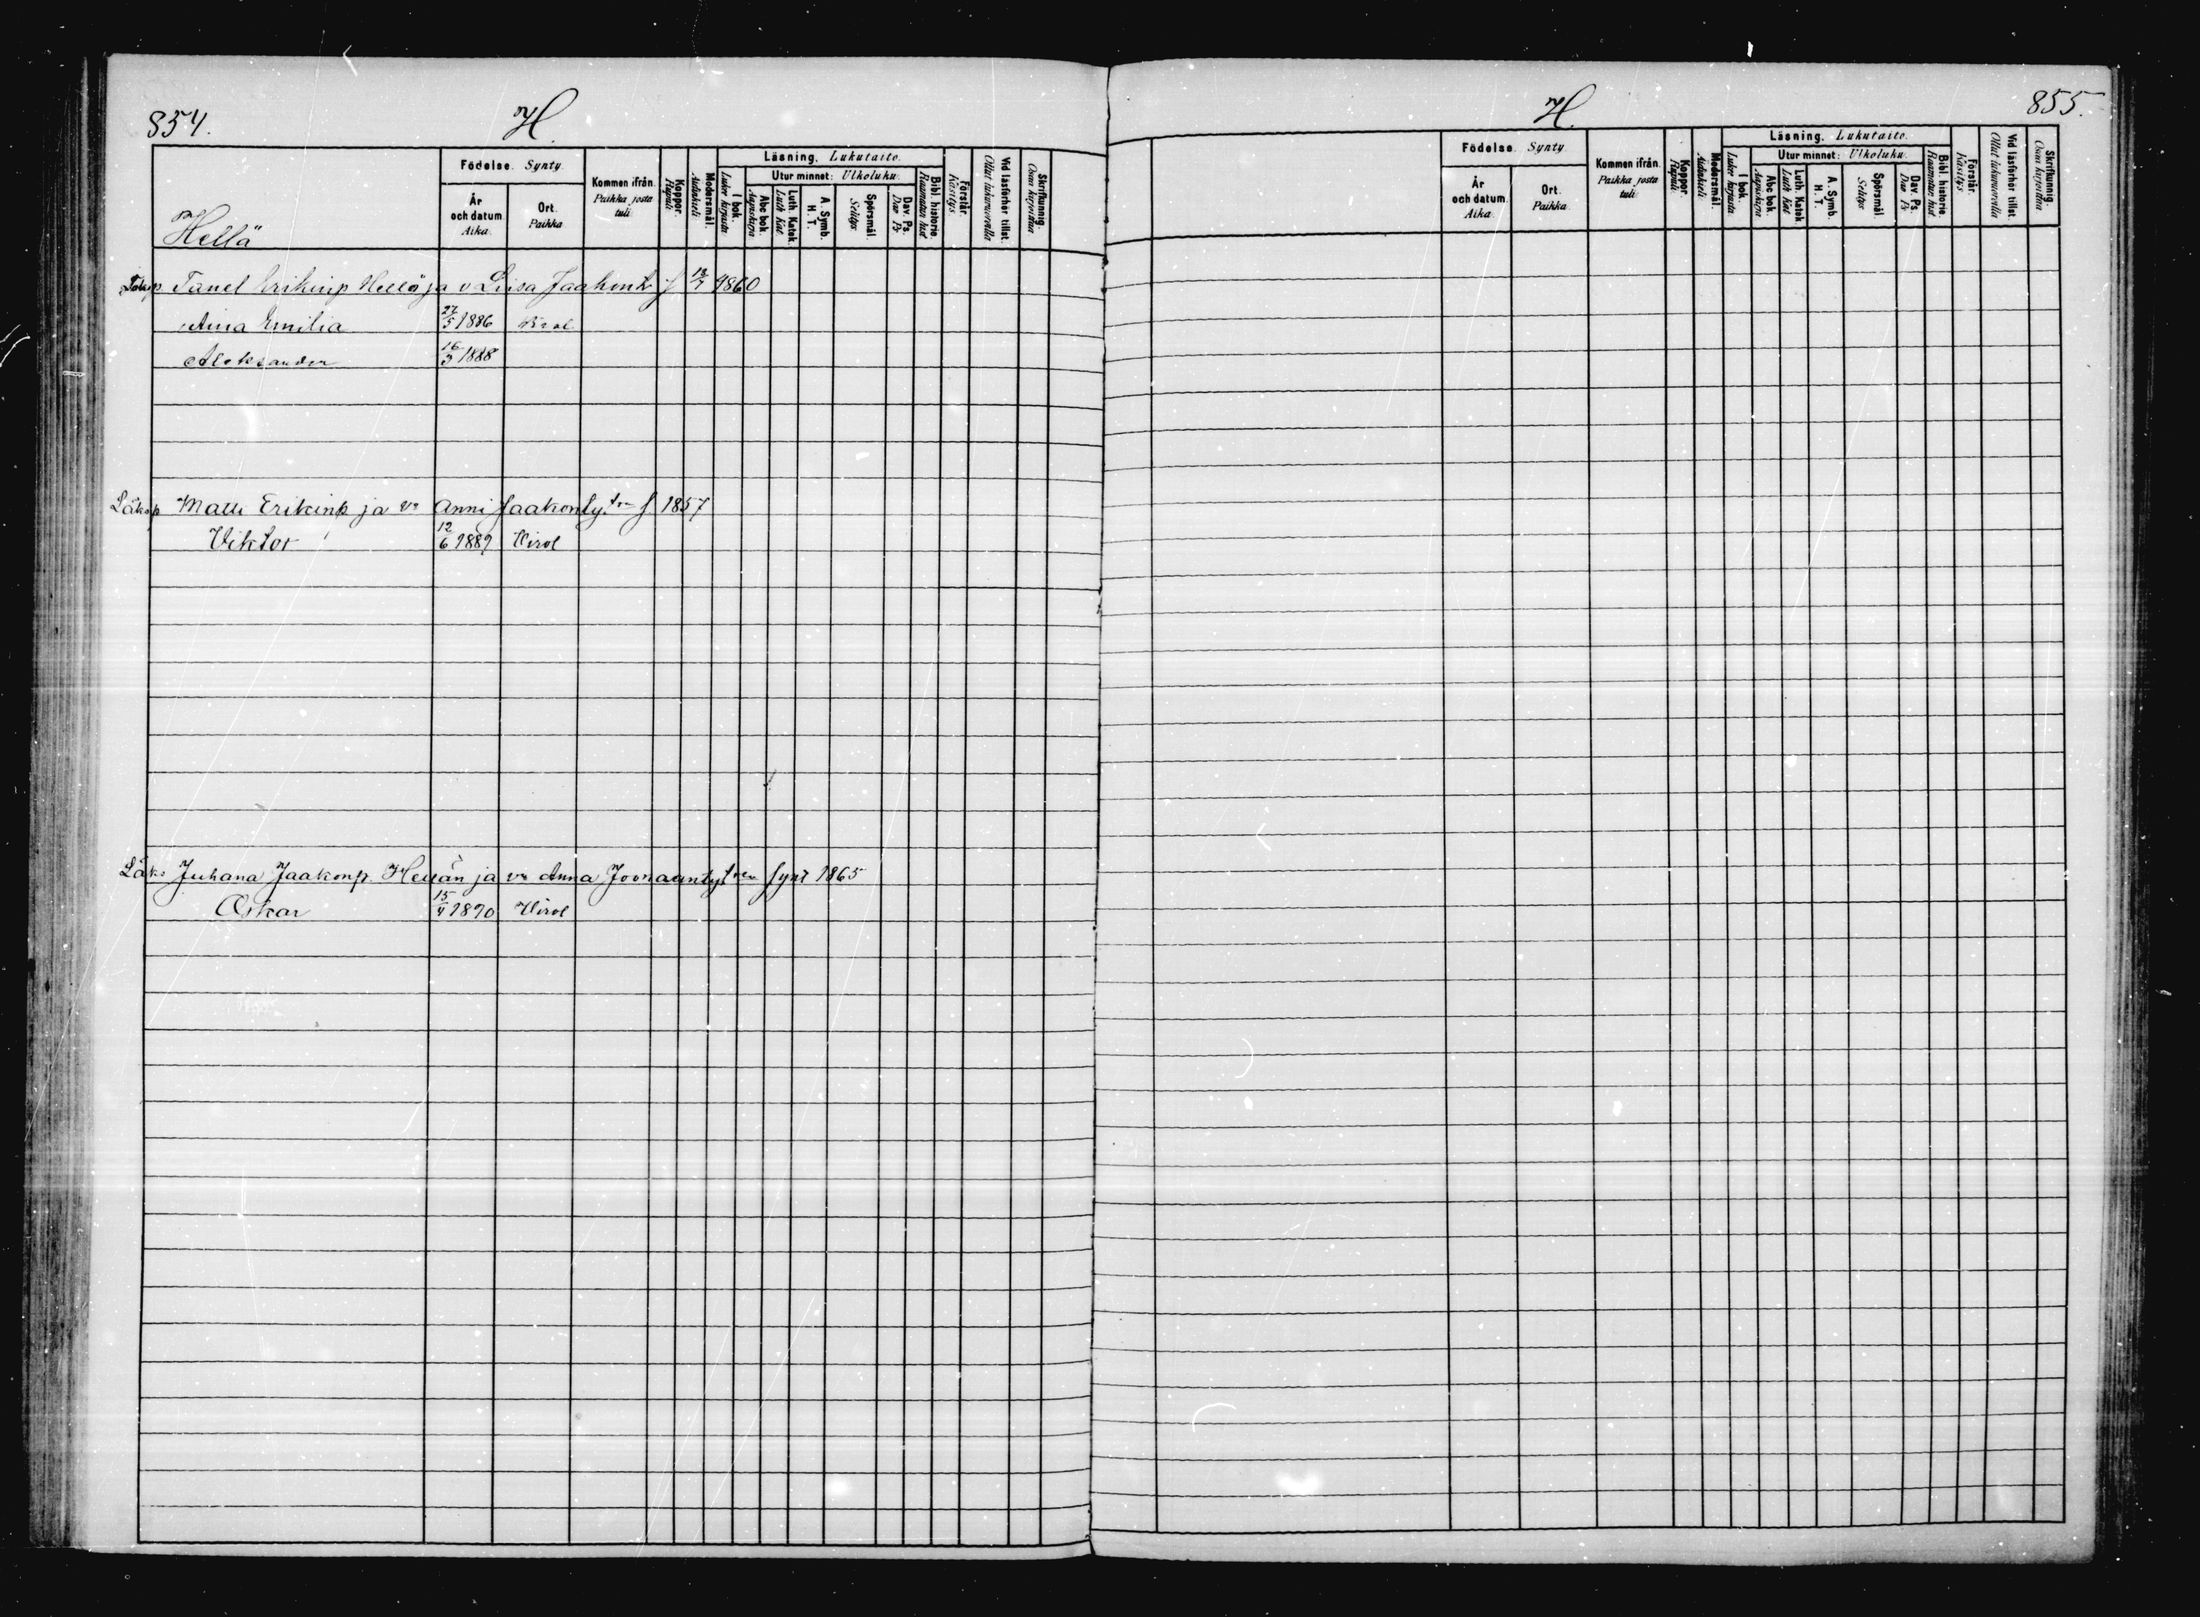 854. H.
Födelse. Synty.
Kommen ifrån. Paikka josta tuli.
Koppor. Rupuli
Modersmål. Aidinkieli
Läsning. Lukutaito.
I bok. Lukee kirjasta
Utur minnet: Ulkoluku.
År och datum. Aika.
Ort. Paikka
Abc bok. Aapiskirja
Luth. Katek. Luth Kat
A. Symb. H. T.
Spörsmål. Selitys
Dav. Ps. Dav Ps
Bibl. historie. Raamatun hist
Förstår. Käsitys.
Vid läsförhör tillst. Ollut lukuvuorolla
Skrifkunnig. Osaa kirjoittaa
Hellä
Tanel Erikinp Hellä ja v Liisa Jaakont s 1860
Aina Emilia 27/5 1886
Aleksander 16/3 1888
Matti Erikinp ja vo Anni Jaakontytön s 1857
Viktor 12/6 1889 Virol
Juhana Jaakonp. Hellän ja vo Anna Joonaantytön synt 1865
Oskar 15/4 1890 Virol
H. 855.
Födelse. Synty
Kommen ifrån. Paikka josta tuli.
Koppor. Rupuli
Modersmål. Aidinkieli
Läsning. Lukutaito.
I bok. Lukee kirjasta
Utur minnet: Ulkoluku.
År och datum. Aika.
Ort. Paikka.
Abc bok. Aapiskirja
Luth. Katek. Luth Kat
A. Symb. H. T.
Spörsmål Selitys
Dav. Ps. Dav Ps
Bibl. historie. Raamatun hist
Förstår. Käsitys.
Vid läsförhör tillst Ollut lukuvuorolla
Skrifkunnig. Osaa kirjoittaa